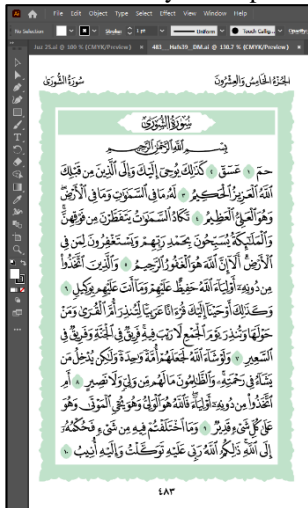 File Edit Object Type Select Effect View Window Help
No Selection Stroke: 1 pt Uniform Touch Callig... Opacity
Juz 25.ai @ 100 % (CMYK/Preview) × 483__Hafs39_DM.ai @ 130.7 % (CMYK/Preview) ×
الجزء الخامس والعشرون سورة الشورى
سورة الشورى
بسم الله الرحمن الرحيم
حمٓ ١ عٓسٓقٓ ٢ كَذَٰلِكَ يُوحِىٓ إِلَيْكَ وَإِلَى ٱلَّذِينَ مِن قَبْلِكَ
ٱللَّهُ ٱلْعَزِيزُ ٱلْحَكِيمُ ٣ لَهُۥ مَا فِى ٱلسَّمَٰوَٰتِ وَمَا فِى ٱلْأَرْضِ
وَهُوَ ٱلْعَلِىُّ ٱلْعَظِيمُ ٤ تَكَادُ ٱلسَّمَٰوَٰتُ يَتَفَطَّرْنَ مِن فَوْقِهِنَّ
وَٱلْمَلَٰٓئِكَةُ يُسَبِّحُونَ بِحَمْدِ رَبِّهِمْ وَيَسْتَغْفِرُونَ لِمَن فِى
ٱلْأَرْضِ أَلَآ إِنَّ ٱللَّهَ هُوَ ٱلْغَفُورُ ٱلرَّحِيمُ ٥ وَٱلَّذِينَ ٱتَّخَذُوا۟
مِن دُونِهِۦٓ أَوْلِيَآءَ ٱللَّهُ حَفِيظٌ عَلَيْهِمْ وَمَآ أَنتَ عَلَيْهِم بِوَكِيلٍ ٦
وَكَذَٰلِكَ أَوْحَيْنَآ إِلَيْكَ قُرْءَانًا عَرَبِيًّا لِّتُنذِرَ أُمَّ ٱلْقُرَىٰ وَمَنْ
حَوْلَهَا وَتُنذِرَ يَوْمَ ٱلْجَمْعِ لَا رَيْبَ فِيهِ فَرِيقٌ فِى ٱلْجَنَّةِ وَفَرِيقٌ فِى
ٱلسَّعِيرِ ٧ وَلَوْ شَآءَ ٱللَّهُ لَجَعَلَهُمْ أُمَّةً وَٰحِدَةً وَلَٰكِن يُدْخِلُ مَن
يَشَآءُ فِى رَحْمَتِهِۦ وَٱلظَّٰلِمُونَ مَا لَهُم مِّن وَلِىٍّ وَلَا نَصِيرٍ ٨ أَمِ
ٱتَّخَذُوا۟ مِن دُونِهِۦٓ أَوْلِيَآءَ فَٱللَّهُ هُوَ ٱلْوَلِىُّ وَهُوَ يُحْىِ ٱلْمَوْتَىٰ وَهُوَ
عَلَىٰ كُلِّ شَىْءٍ قَدِيرٌ ٩ وَمَا ٱخْتَلَفْتُمْ فِيهِ مِن شَىْءٍ فَحُكْمُهُۥٓ
إِلَى ٱللَّهِ ذَٰلِكُمُ ٱللَّهُ رَبِّى عَلَيْهِ تَوَكَّلْتُ وَإِلَيْهِ أُنِيبُ ١٠
٤٨٣